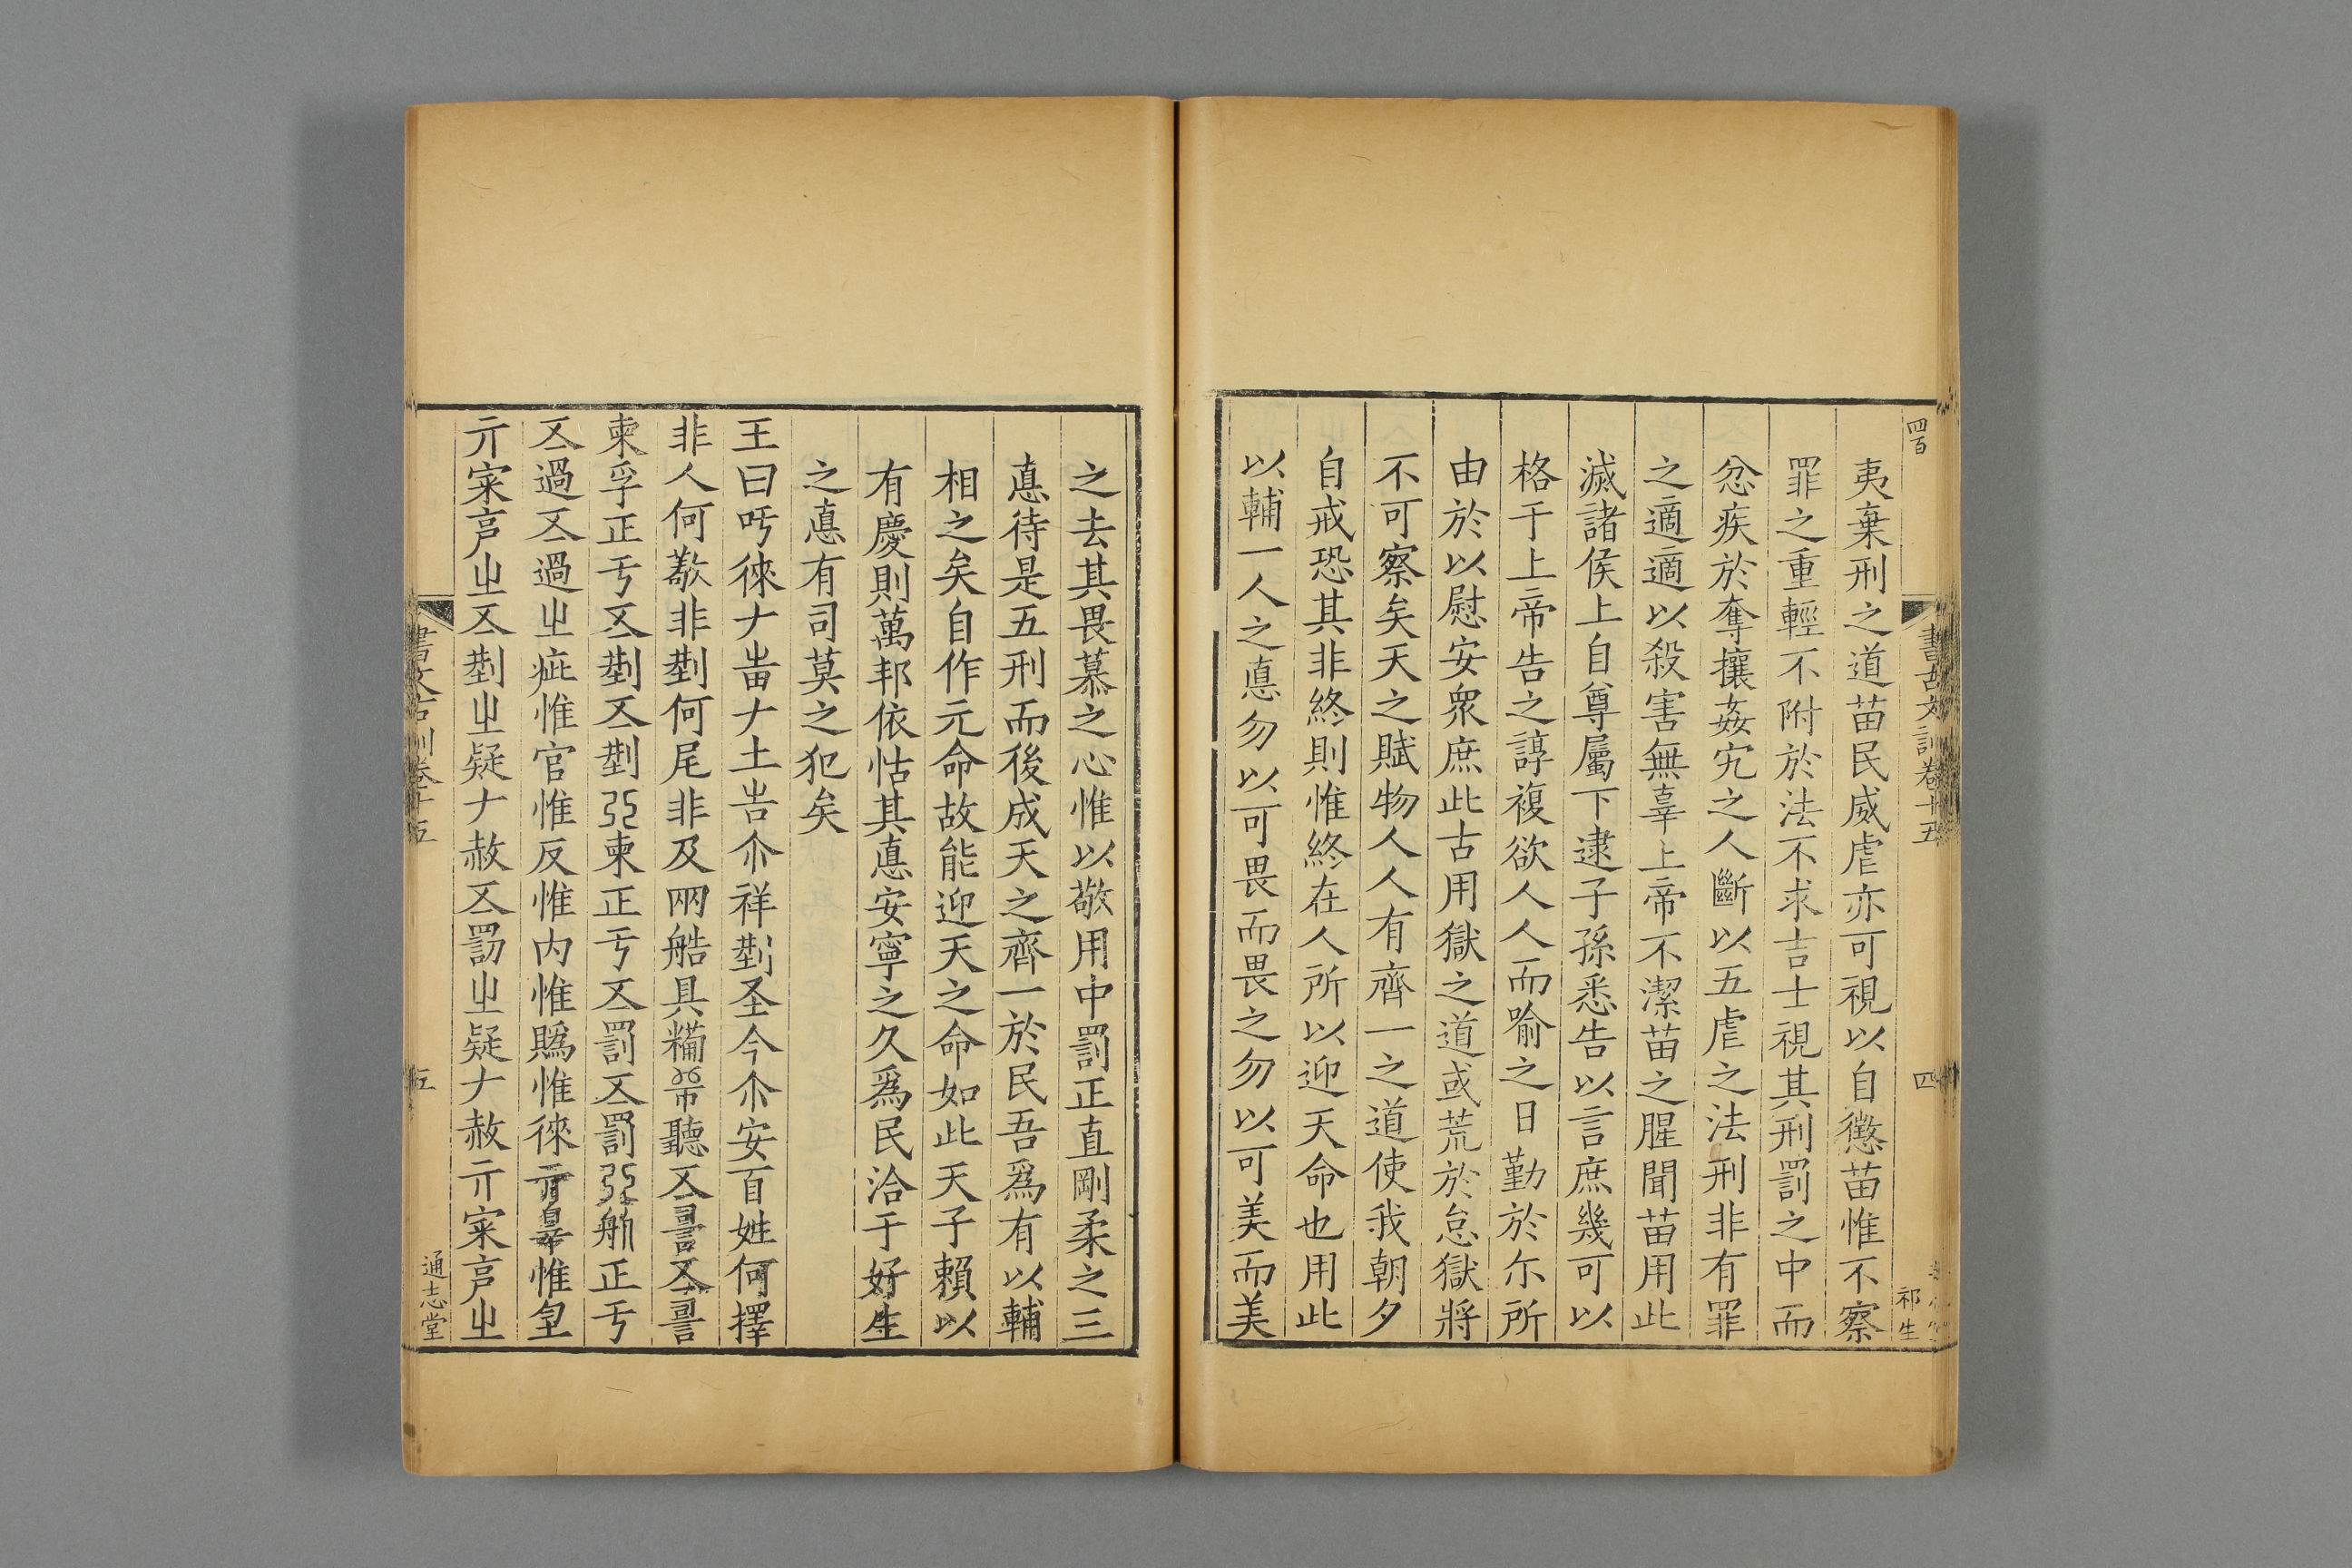 四百
書古文訓卷十五
四
祁生
夷棄刑之道苗民威虐亦可視以自懲苗惟不察
罪之重輕不附於法不求吉士視其刑罰之中而
忿疾於奪攘姦宄之人斷以五虐之法刑非有罪
之適適以殺害無辜上帝不潔苗之腥聞苗用此
滅諸侯上自尊屬下逮子孫悉告以言庶幾可以
格于上帝告之諄複欲人人而喻之日勤於尒所
由於以慰安衆庶此古用獄之道或荒於怠獄將
不可察矣天之賦物人人有齊一之道使我朝夕
自戒恐其非終則惟終在人所以迎天命也用此
以輔一人之悳勿以可畏而畏之勿以可美而美
之去其畏慕之心惟以敬用中罰正直剛柔之三
悳待是五刑而後成天之齊一於民吾爲有以輔
相之矣自作元命故能迎天之命如此天子賴以
有慶則萬邦依怙其悳安寧之久爲民洽于好生
之悳有司莫之犯矣
王曰吁徠𠂇㽕𠂇土告尒祥㓝圣今尒安百姓何擇
非人何敬非㓝何尾非及㒳艁具𥻆㡀聽𠄡𧬨𠄡𧬨
柬孚正亐𠄡㓝𠄡㓝弜柬正亐𠄡罰𠄡罰弜𦨕正亐
𠄡過𠄡過㞢疵惟官惟反惟内惟䞈惟徠亓辠惟㿝
亓寀亯㞢𠄡㓝㞢疑𠂇赦𠄡罰㞢疑𠂇赦亓寀亯㞢
書古文訓卷十五
五
通志堂